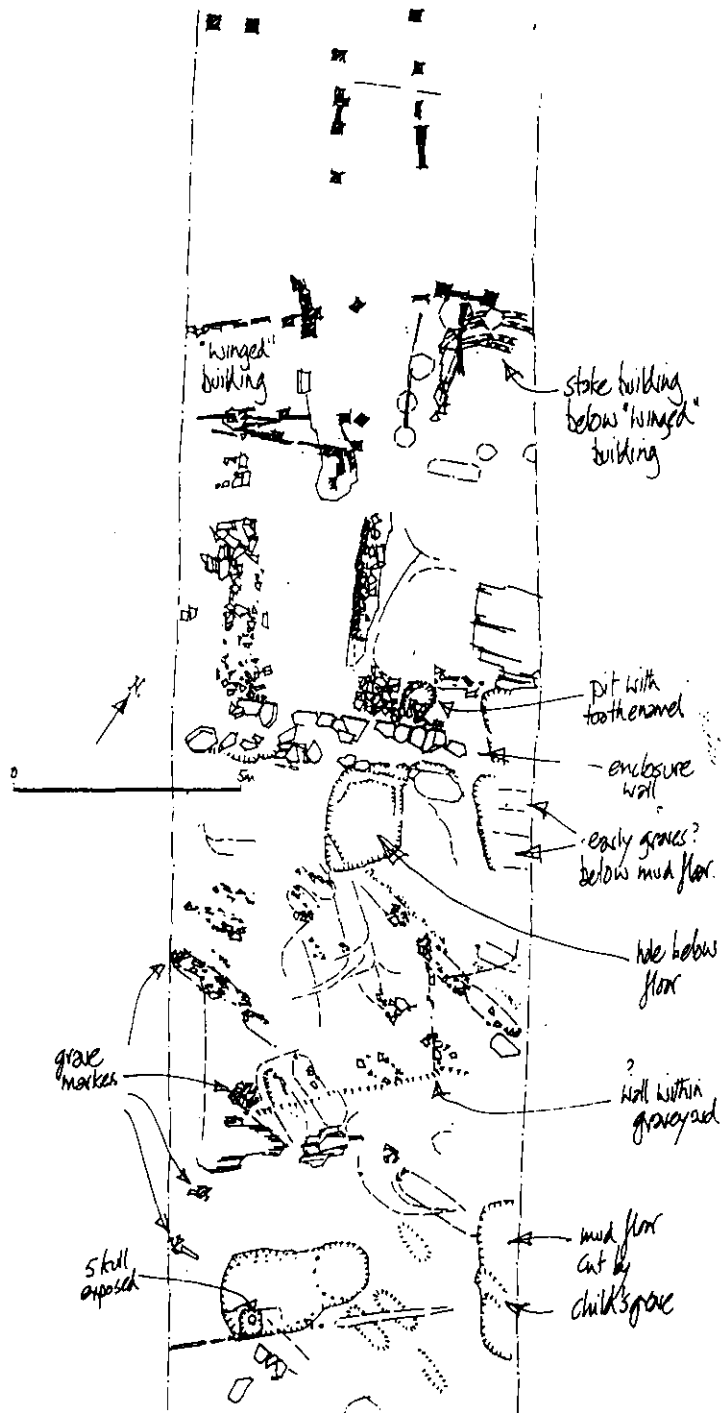 "winged"
building
stake building
below "winged"
building
pit with
tooth enamel
N
0
5m
enclosure
wall
early graves?
below mud floor.
hole below
floor
grave
markes
?
wall within
graveyard
mud floor
cut by
child's grave
skull
exposed